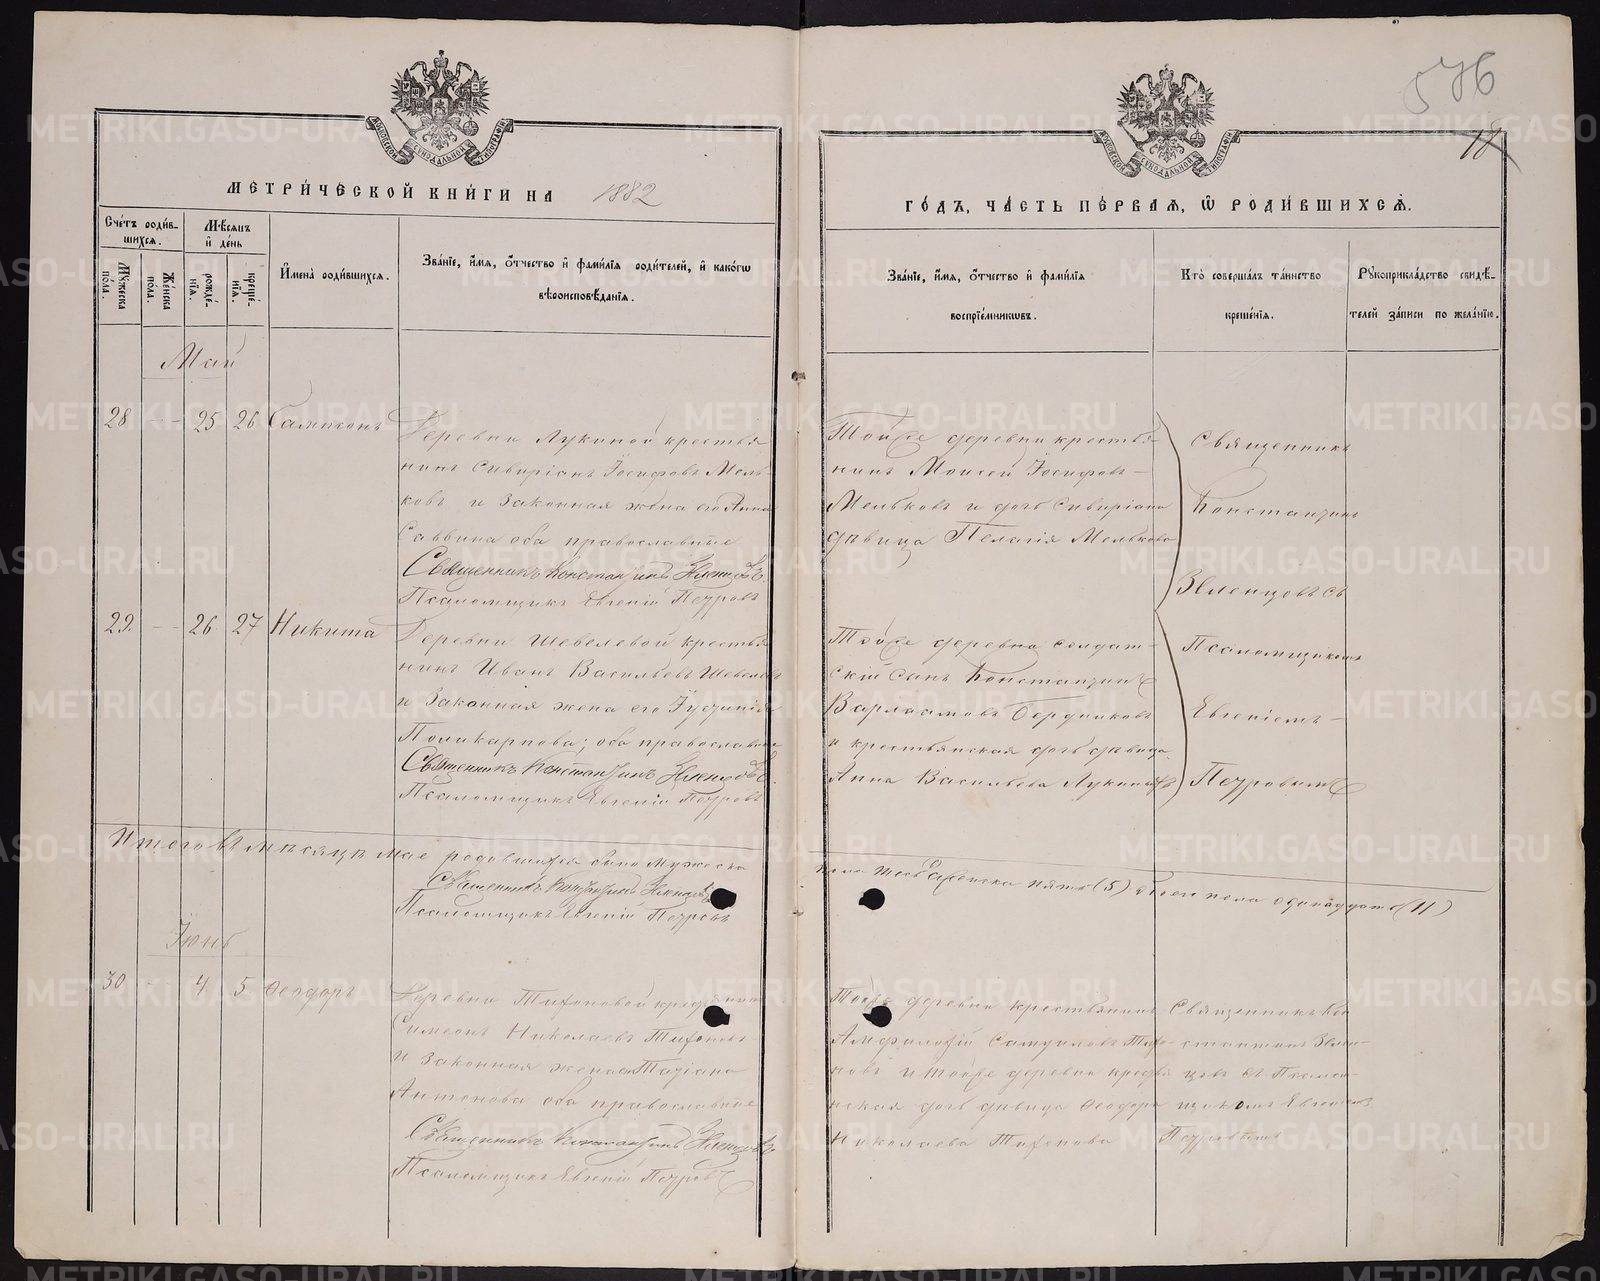 576
18
МОСКОВСКОЙ СѴНОДАЛЬНОЙ ТИПОГРАФІИ
МОСКОВСКОЙ СѴНОДАЛЬНОЙ ТИПОГРАФІИ
МЕТРИ́ЧЕСКОЙ КНИ́ГИ НА 1882
ГО́ДЪ, ЧА́СТЬ ПЕ́РВАЯ, Ѡ РОДИ́ВШИХСЯ.
Сче́тъ роди́в-
шихся.
Мѣ́сяцъ
и́ де́нь
Мꙋ́жеска
по́ла.
Же́нска
по́ла.
рожде́-
нїя.
креще́-
нїя.
И҆мена̀ роди́вшихся.
Зва́нїе, и҆́мя, ѻ҆́тчество и҆ фами́лїя роди́телей, и҆ како́гѡ
вѣроисповѣ́данїя.
Зва́нїе, и҆́мя, ѻ҆́тчество и҆ фами́лїя
воспрїе́мникѡвъ.
Кто̀ соверша́лъ та́инство
креще́нїя.
Рꙋкоприкла́дство свидѣ́-
телей за́писи по жела́нїю.
Май
28 - 25 26 Сампсонъ
Деревни Лукиной крестья
нинъ Сивиріанъ Іосифовъ Мель-
ковъ и законная жена его Анна
Саввина оба православные
Священникъ Константинъ
Псаломщикъ Евгеній Петровъ
Тойже деревни крестья
нинъ Моисей Іосифовъ
Мельковъ и дочь Сивиріана
дѣвица Пелагія Мелькова
Священникъ
Константинъ
29. - 26 27 Никита
Деревни Шевелевой крестья
нинъ Иванъ Васильевъ Шевелевъ
и законная жена его Іустинія
Поликарпова; оба православные
Священникъ Константинъ
Псаломщикъ Евгеній Петровъ
Тойже деревни солдат-
скій сынъ Константинъ
Варлаамовъ Бердниковъ
и крестьянская дочь дѣвица
Анна Васильева
Псаломщикомъ
Евгеніемъ
Петровымъ
Итого въ мѣсяцѣ мае родившихся было мужеска
пола женска пять (5) обоего пола одинадцать (11)
Священникъ Константинъ
Псаломщикъ Евгеній Петровъ
Іюнь
30 - 4 5 Феодоръ
Деревни Тифоновой крестьянинъ
Симеонъ Николаевъ Тифоновъ
и законная жена его Татіана
Антонова оба православные
Священникъ Константинъ
Псаломщикъ Евгеній Петровъ
Тойже деревни крестьянинъ
Амфилохій Самуиловъ Тифо-
новъ и тойже деревни крестья
нская дочь дѣвица Феодора
Николаева Тифонова
Священникъ Кон
стантинъ
цовъ съ Псалом-
щикомъ Евгеніемъ
Петровымъ
METRIKI.GASO-URAL.RU